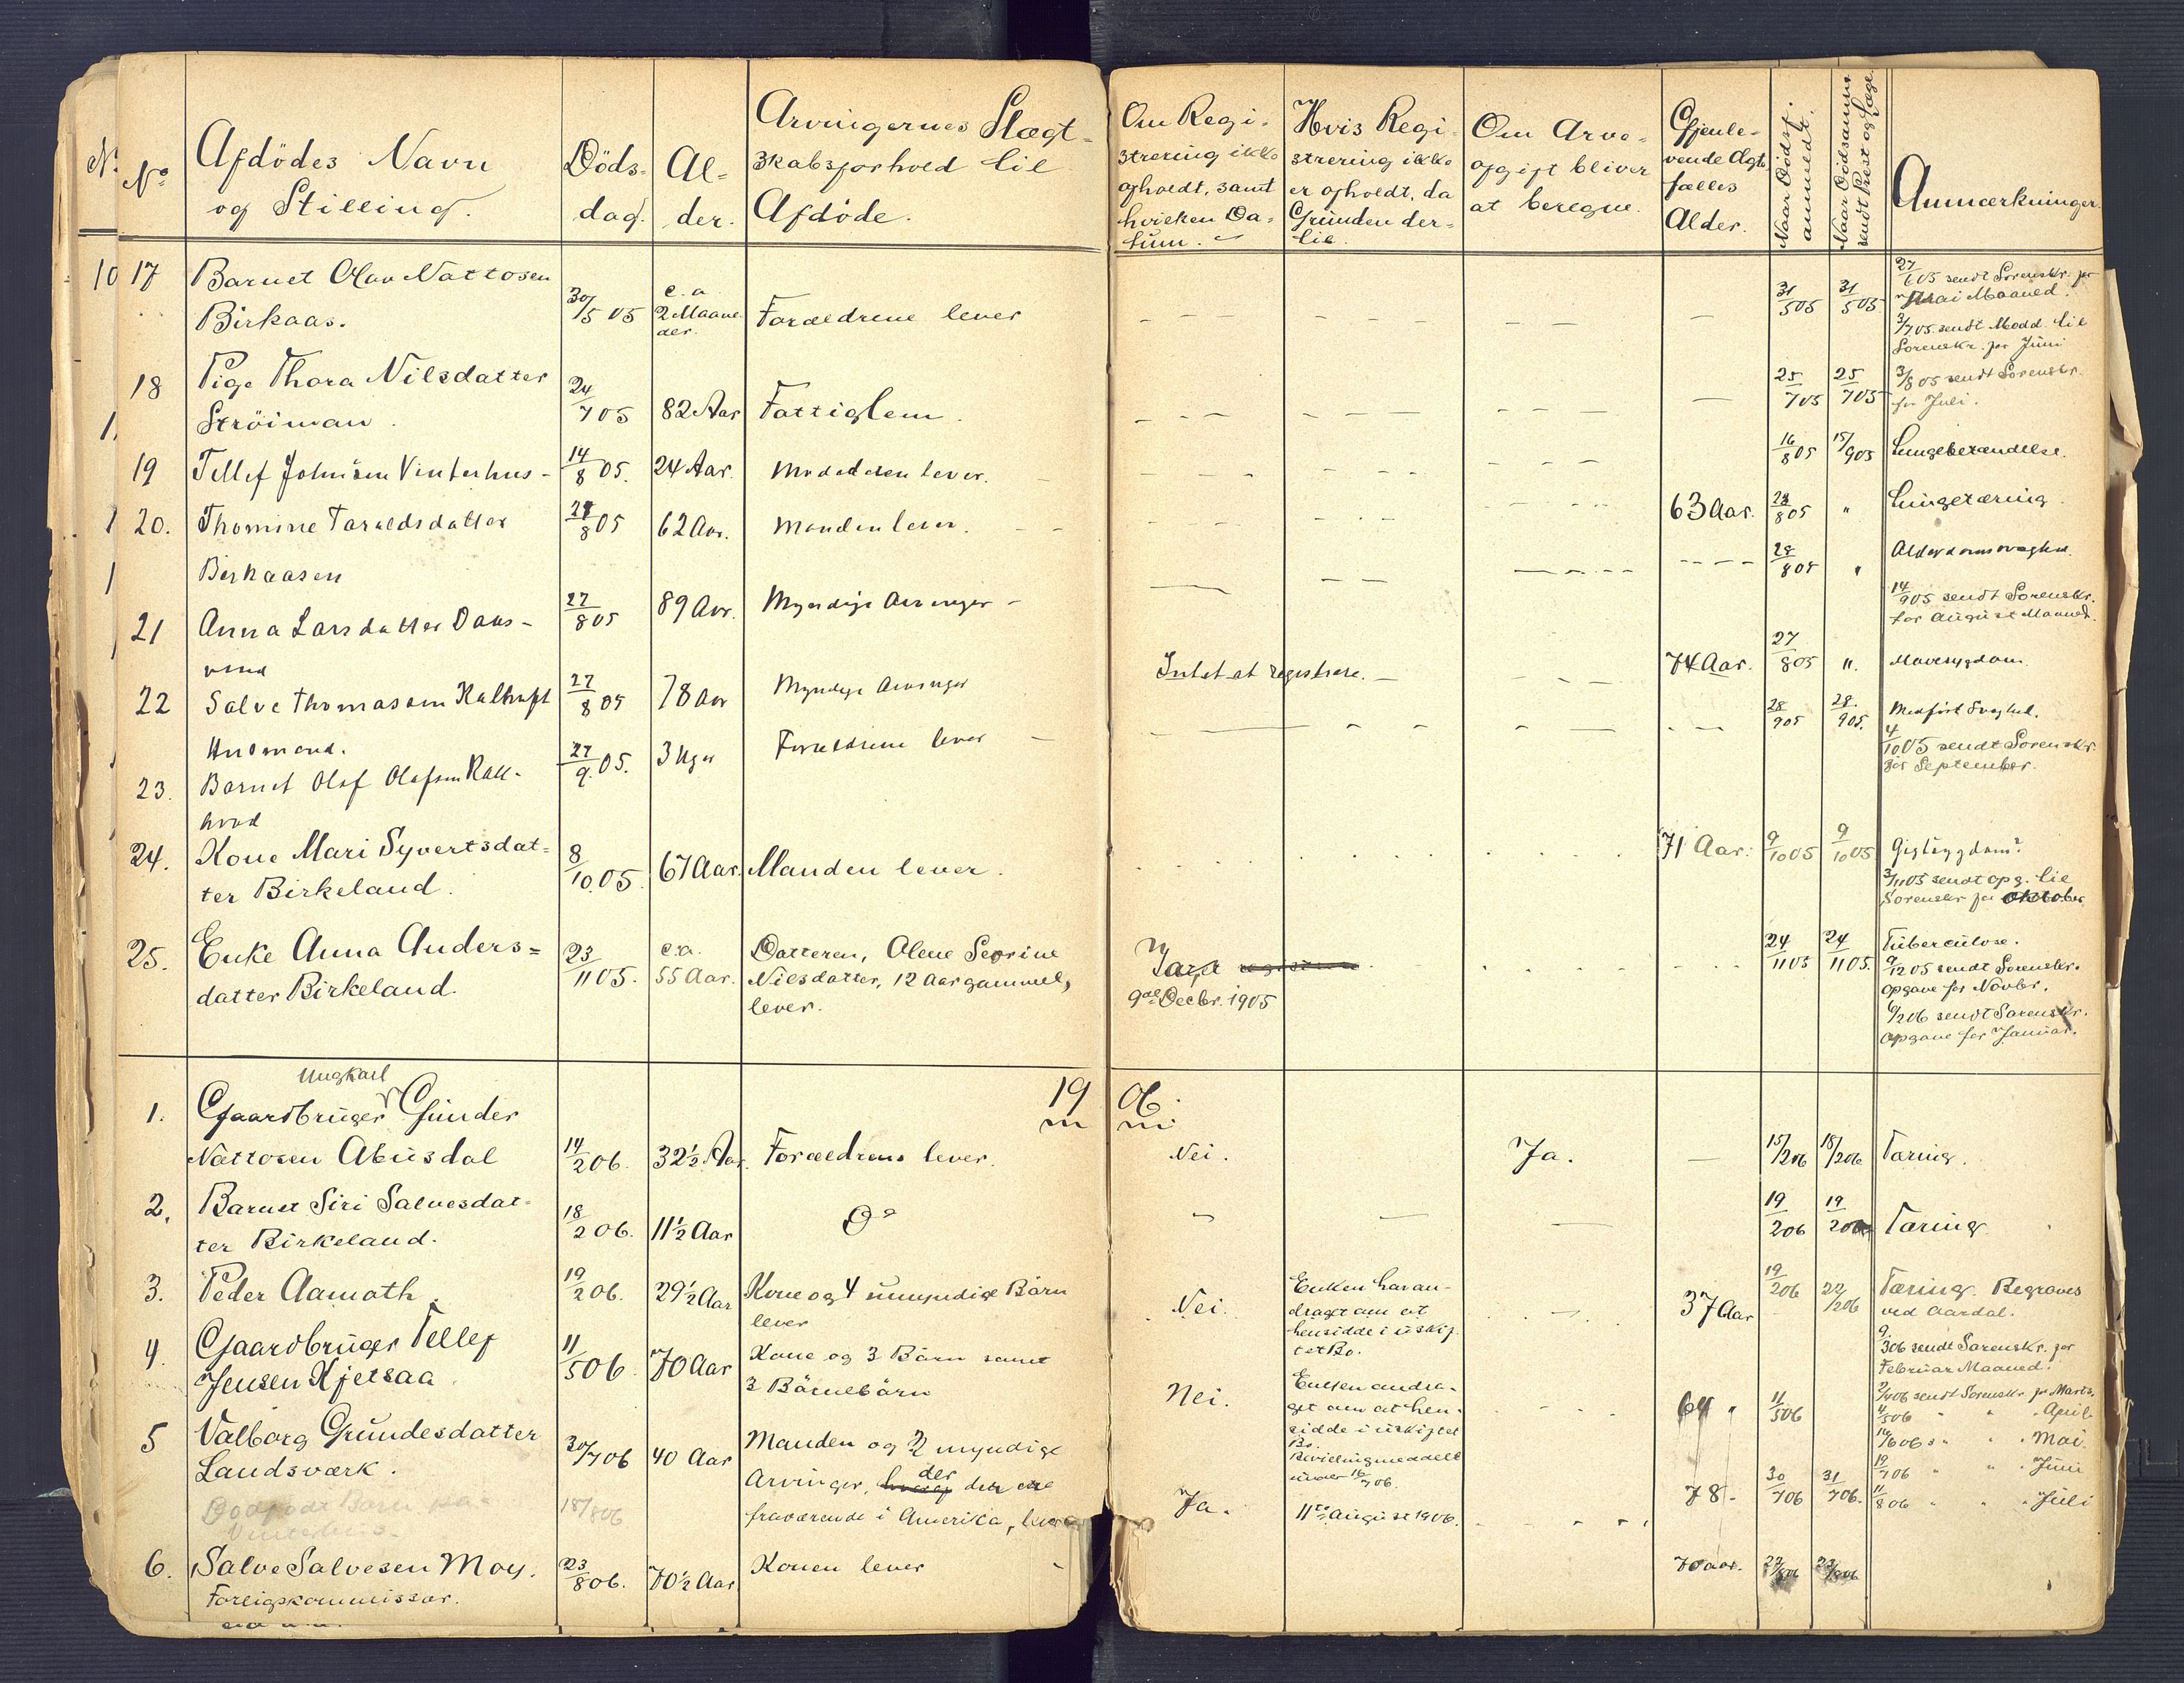 No
Afdödes Navn
og Stilling.
Döds-
dag.
Al-
der.
Arvingernes Slægt-
skabsforhold til
Afdöde.
Om Regi-
strering ikke
afholdt, samt
hvilken Da-
tum.
Hvis Regi-
strering ikke
er afholdt, da
Grunden der-
til.
Om Arve-
afgift bliver
at beregne.
Gjenle-
vende Ægte-
fælles
Alder.
Naar Dödsf.
anmeldt.
Naar Dödsanm.
sendt Prest og Læge
Anmærkninger.
10 17 Barnet Olav Nattosen
Birkaas.
30/5 05
c. a.
2 Maane
der.
Forældrene lever
31/5 05
31/5 05
27/6 05 sendt Sorenskr. for
Mai Maaned.
3/7 05 sendt Medd. til
Sorenskr. for Juni
18 Pige Thora Nilsdatter
Ströiman.
24/7 05
82 Aar
Fattiglem.
25/7 05
25/7 05
3/8 05 sendt Sorenskr.
for Juli.
19 Tellef Johnsen Vinterhus -
14/8 05.
24 Aar.
Modderen lever.
16/8 05
15/9 05
Lungebetændelse.
20. Thomine Taraldsdatter
Birkaasen
28/8 05
62 Aar.
Manden lever.
63 Aar.
28/8 05
"
Lungetæring
21 Anna Larsdatter Daas-
vand
27/8 05
89 Aar.
Myndige Arvinger -
28/8 05
"
Alderdomssvaghed.
14/9 05 sendt Sorenskr.
for August Maaned.
22 Salve Thomassen Kalhoft
Husmand.
27/8 05
78 Aar
Myndige Arvinger
Intet at registrere. -
74 Aar.
27/8 05
".
Mavesygdom.
23. Barnet Olaf Olafsen Kal-
hovd
27/9. 05.
3 Uger
Forældrene lever
28/9 05
28./9 05.
Medfödt Svaghed.
4/10 05 sendt Sorenskr.
for September.
24. Kone Mari Syvertsdat-
ter Birkeland.
8/10. 05.
67 Aar.
Manden lever.
71 Aar.
9/10 05
9/10 05
Gigtsygdom?
3/11 05 sendt opg. til
Sorenskr for Oktober
25. Enke Anna Anders-
datter Birkeland.
23/11 05.
c.a.
55 Aar.
Datteren, Olene Serine
Nilsdatter, 12 Aar gammel,
lever.
9de Decbr. 1905
24/11 05
24/11 05.
Tuberculose.
9/12 05 sendt Sorenskr.
Opgave for Novbr.
6/2 06 sendt Sorenskr.
Opgave for Januar.
1906.
Ungkarl
1. Gaardbruger Gunder
Nattosen Abusdal
14/2 06.
32 1/2 Aar.
Forældrene lever.
Nei.
Ja.
15/2 06
18/2 06
Tæring.
2. Barnet Siri Salvesdat-
ter Birkeland.
18/2 06.
11 1/2 Aar
Do
19/2 06
19/2 06
Tæring
3. Peder Aamoth.
19/2 06.
29 1/2 Aar
Kone og 4 umyndige Börn
lever
Nei.
Enken har an-
draget om at
hensidde i uskif-
tet Bo.
37 Aar
19/2 06
22/2 06
Tæring. Begraves
ved Aardal.
9./3 06 sendt Sorenskr. for
Februar Maaned.
4. Gaardbruger Tellef
Jensen Kjetsaa
11/5 06
70 Aar
Kone og 3 Börn samt
3 Börnebörn
Nei.
Enken andra-
get om at hen-
sidde i uskiftet
Bo.
Bevilling meddelt
under 16/7 06.
64 "
11/5 06
2/4 06 sendt Sorenskr. for Marts.
4/5 06 " " " April
6 06 " " " Mai.
7 06 " " " Juni
11/8 06 " " " Juli
5 Valborg Grundesdatter
Landsværk.
30/7 06
40 Aar
Manden og 2 myndige
Arvinger, der den ene
fraværende i Amerika, lever
Ja.
11te August 1906.
78.
30/7 06
31/7 06.
Dödfödt Barn paa
Vinterhus.
18/8 06
6. Salve Salvesen Moy.
Forligskommissær.
23/8 06.
70 1/2 Aar
Konen lever
70 aar.